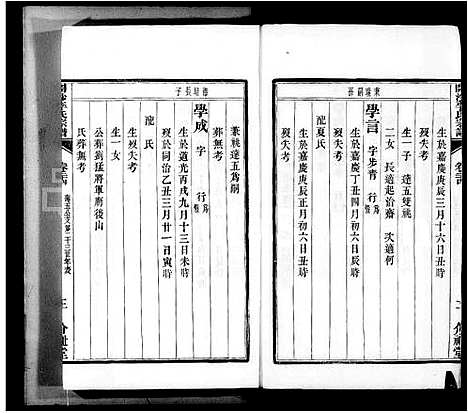 東璇嗣孫
學言 字步青 行
生於嘉慶丁丑四月初六日辰時
歿失考
配夏氏
生於嘉慶庚辰正月初六日丑時
歿於嘉慶庚辰三月十六日丑時
生一子 達五雙祧
二女 長適起治齋 次適何
歿失考
兼祧達五為嗣
葬無考
長子
學成 字 行
生於道光丙戌九月十三日未時
歿失考
配氏
歿於同治乙丑三月廿一日寅時
生一女
公葬劉猛將軍廟後山
氏葬無考
氏宗譜